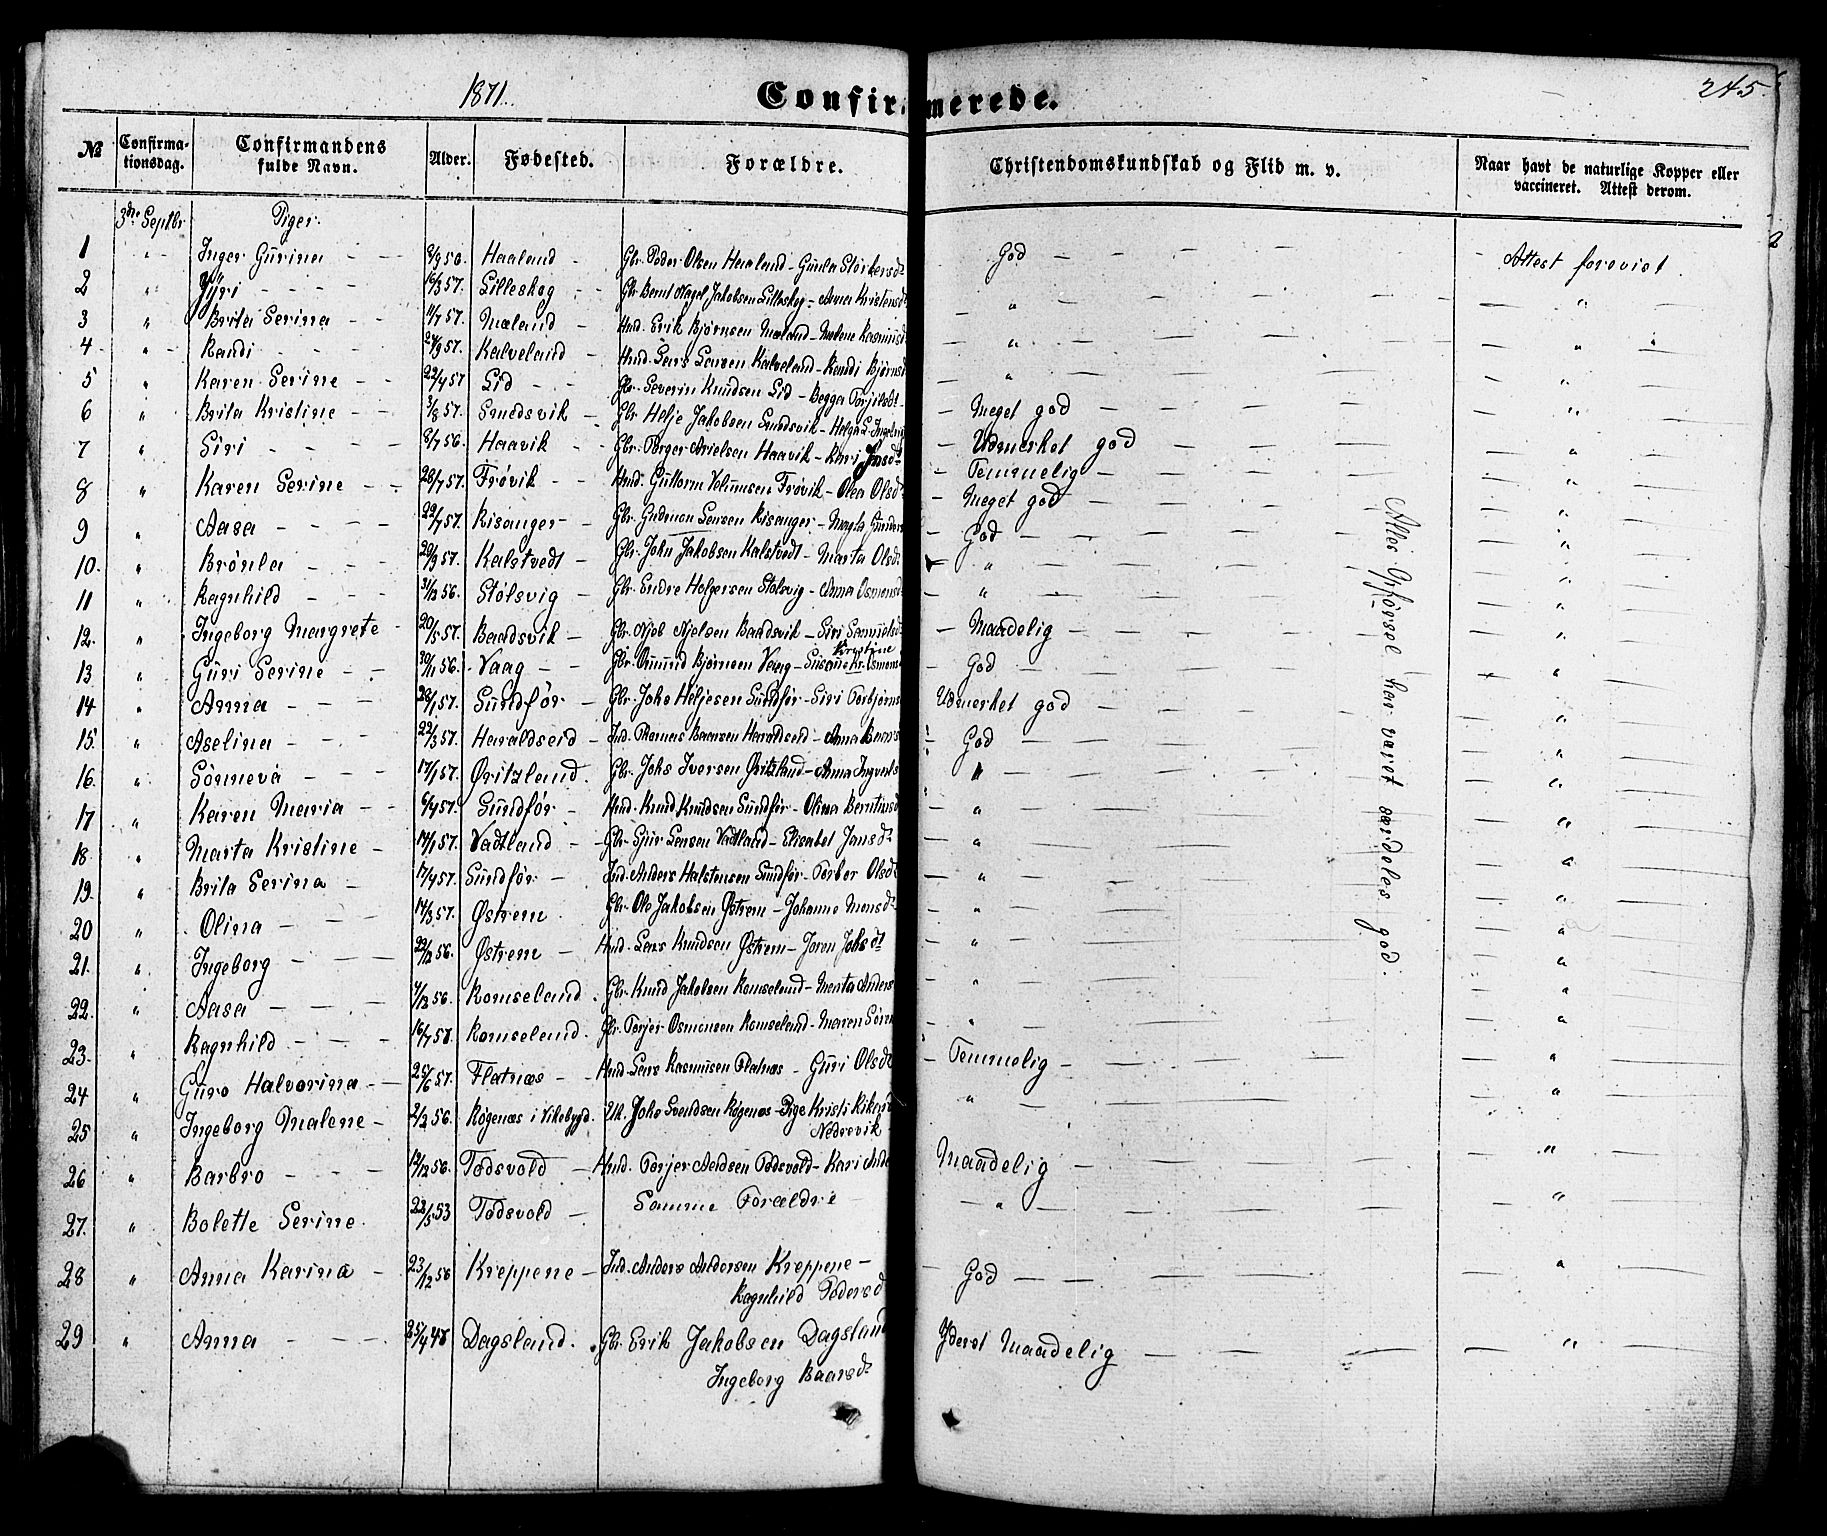 1871.
Confirmerede.
245.
No Confirmationsdag. Confirmandens fulde Navn. Alder. Fødested. Forældre. Christendomskundskab og Flid m. v. Naar havt de naturlige Kopper eller vaccineret. Attest derom.
3die Septbr Piger.
1 " Inger Gurina Haaland Gbr. Peder Olsen Haaland - Gunla Størkersdt God Attest forevist.
2 " Lilleskog Gbr Bernt Nagel Jakobsen Lilleskog - Anna Kristensdt " "
3 " Brita Serina 11/7 57. Mæland Hmd. Erik Bjørnsen Mæland - Malene Rasmusd " "
4 " Randi 24/9 57. Kalveland Hmd. Lars Larsen Kalveland - Randi Bjørnsd " "
5 " Karen Serine 22/4 57 Lid Gbr. Severin Knudsen Lid - Begga Torjilsdt Meget god "
6 " Brita Kristine 3/8 57. Smedsvik Gbr Helje Jakobsen Smedsvik - Helga Udmerket god "
7 " Siri 8/7 56. Haavik Gbr. Børger Haavik - Kari Temmelig "
8 " Karen Serine 28/7 57. Frøvik Hmd. Guttorm Frøvik - Olea Olsdt Meget god "
9 " Aasa 22/7 57. Risanger Gbr. Gudmon Larsen Risanger - God "
10. " Brønla 20/9 57. Kalstvedt Gbr. John Jakobsen Kalstvedt - Marta Olsdt " "
11 " Ragnhild 31/12 56. Stølsvig Gbr. Endre Holgersen Stølsvig - Anna Osmonsd " "
12. " Ingeborg Margrete 20/5 57. Baadsvik Gbr. Baadsvik - Siri Samuelsdt Maadelig "
13 " Guri Serine 30/11 56. Vaag Gbr. Bjørnsen Vaag - God "
14 " Anna 20/1 57. Sundfør Gbr. Johs Heljesen Sundfør - Siri Torbjørns Udmerket god "
15. " Aselina 22/3 57. Haraldseid Ind. Thomas Baarsen Haraldseid - Anna God "
16. " Sønneva 17/1 57. Øritzland. Gbr. Johs Iversen Øritzland - Anna " "
17 " Karen Maria 6/4 57. Sundfør Hmd. Knud Knudsen Sundfør - Olina " "
18 " Marta Kristine 14/1 57. Vadtland Gbr. Larsen Vadtland - Elisabet Jansdt " "
19. " Brita Serina 17/4 57. Sundfør Ind. Anders Halstensen Sundfør - Torber Olsdt " "
20 " Olina 14/3 57. Østrem. Gbr. Ole Jakobsen Østrem - Johanne Monsdt " "
21. " Ingeborg 22/12 56. Østrem Hmd. Lars Knudsen Østrem - Joren Johsdt " "
22. " Aasa 4/12 56. Romseland. Gbr. Knud Jakobsen Romseland - Marta Anders " "
23. " Ragnhild Romseland. Gbr. Torjer Osmonsen Romseland - Maren " "
24 " Guro Halvorina 25/6 57. Flatnæs Hmd. Lars Rasmusen Flatnæs - Guri Olsdt Temmelig "
25 " Ingeborg Malene 2/2 56. Røgenæs i Vikebygd. Johs Svendsen Røgenæs - Pige Kristi " "
Nedrevik
26 " Barbro 12/12 56. Tødsvold Hmd. Torjer Tødsvold - Kari Maadelig "
27. " Bolette Serine. 22/5 53 Tødsvold Samme Forældre " "
28 " Anna Karina 23/12 56 Kreppene Ind. Anders Andersen Kreppene - God "
Ragnhild Pedersd
29 " Anna 25/4 48 Dagsland. Gbr. Erik Jakobsen Dagsland Yderst Maadelig "
Ingeborg Baarsdt
Alles Opførsel har været særdeles god.